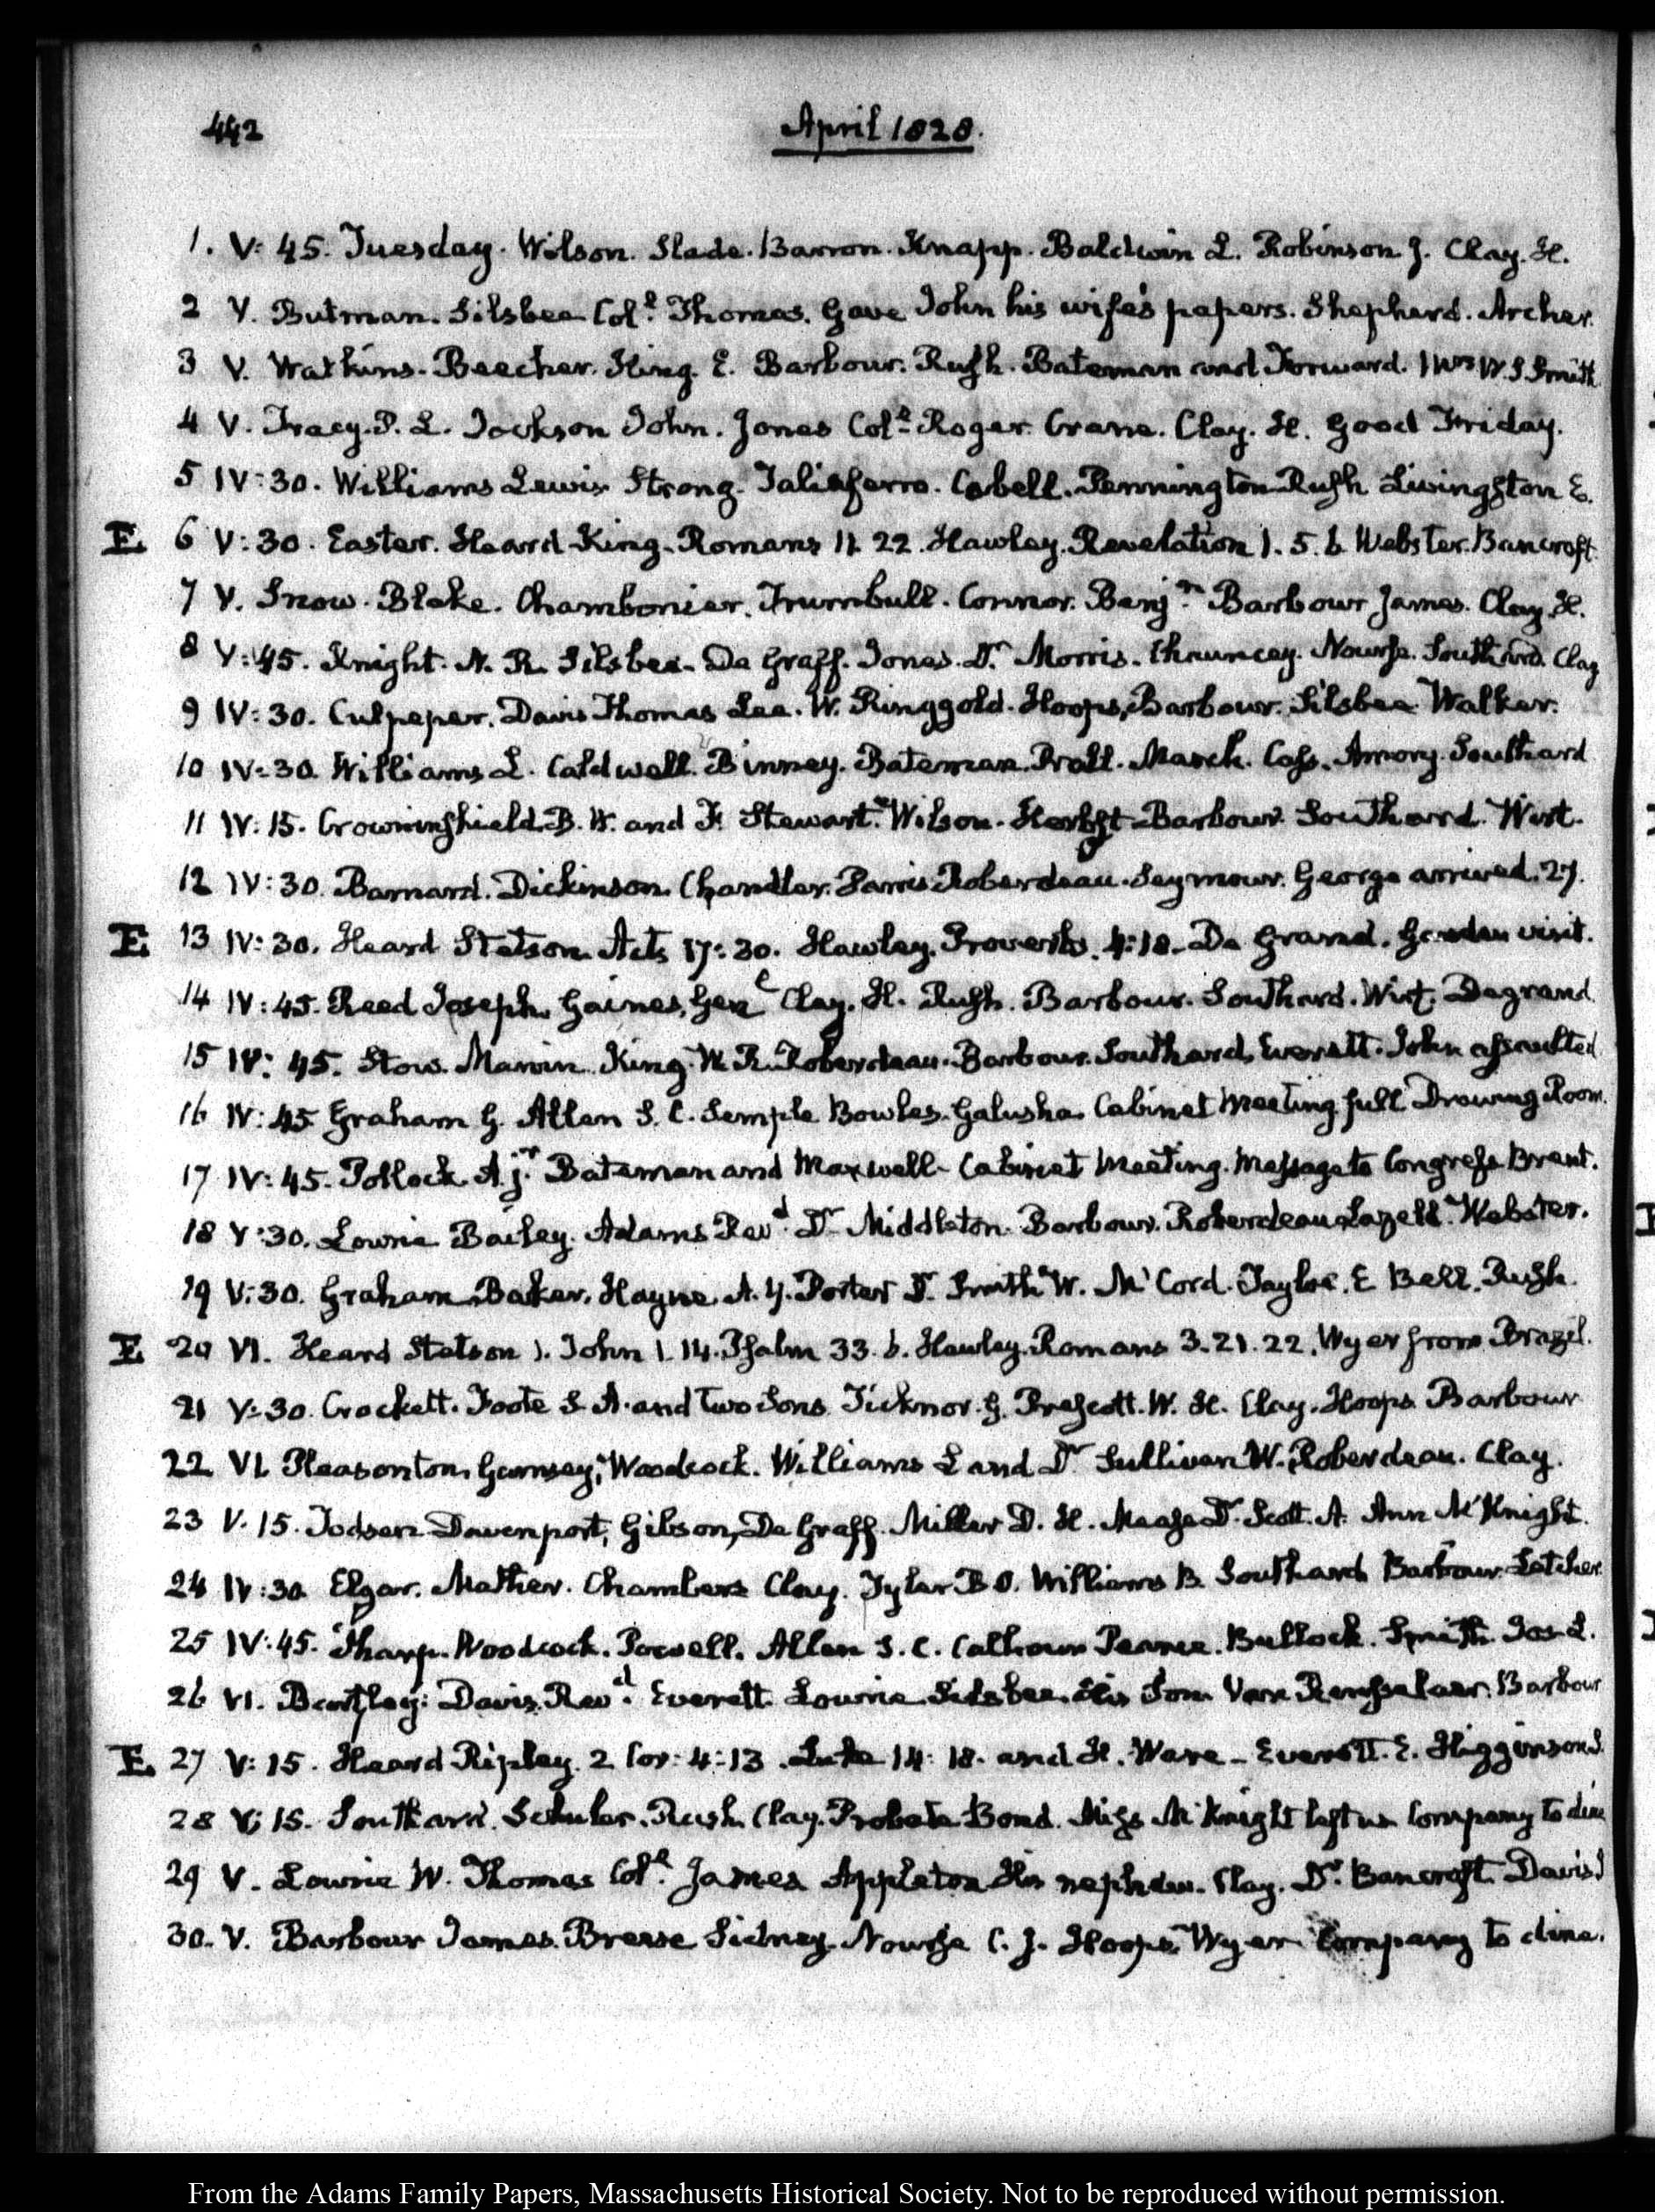 442
April 1828.
1. V: 45. Tuesday. Wilson. Slade. Barron. Knapp. Baldwin L. Robinson J. Clay. H.
2 V. Butman. Silsbee Col.l Thomas. Gave John his wife's papers. Shepherd. Archer.
3 V. Watkins. Beecher. King. E. Barbour. Rush. Bateman and Forward. Mrs W. S Smith
4 V. Tracy. P. L. Jackson John. Jones Col.l Roger. Crane. Clay. H. Good Friday.
5 IV:30. Williams Lewis Strong. Taliaferro. Cabell. Pennington Rush Livingston E.
E. 6 V:30. Easter. Heard King. Romans 11. 22. Hawley. Revelation 1. 5. 6 Webster. Bancroft.
7 V. Snow. Blake. Chambonier. Trumbull. Connor. Benj.n Barbour James. Clay. H.
8 V:45. Knight. N. R. Silsbee. De Graff. Jones. Dr Morris. Chauncey. Nourse. Southard. Clay
9 IV:30. Culpeper. Davis Thomas Lee. W. Ringgold. Hoops, Barbour. Silsbee Walker.
10 IV:30. Williams L. Caldwell. Binney. Bateman. Proll. March. Cass. Amory. Southard
11 IV:15. Crowninshield. B. W. and F. Stewart. Wilson. Herbst Barbour. Southard. Wirt.
12 IV:30. Barnard. Dickinson. Chandler. Parris Roberdeau. Seymour. George arrived. 27.
E. 13 IV:30. Heard Stetson. Acts 17:30. Hawley. Proverbs. 4:18. De Grand. visit.
14 IV:45. Reed Joseph. Gaines, Gen.l Clay. H. Rush. Barbour. Southard. Wirt. Degrand
15 IV:45. Stow. Marvin. King. W. R. Roberdeau. Barbour. Southard, Everett. John assaulted
16 IV:45 Graham G. Allen S. C. Semple Bowles. Galusha. Cabinet Meeting. full Drawing Room.
17 IV:45. Pollock A. jr. Bateman and Maxwell. Cabinet Meeting. Message to Congress Brent.
18 V:30. Lowrie Bailey. Adams Rev.d Dr Middleton. Barbour. Roberdeau Lazell. Webster.
19 V:30. Graham. Baker, Hayne A. Y. Porter Dr Smith W. McCord. Tayloe. E Bell. Rush.
E. 20 VI. Heard Stetson 1. John 1. 14. Psalm 33. 6. Hawley. Romans 3. 21. 22. Wyer from Brazil.
21 V:30. Crockett. Foote S. A. and two Sons. Ticknor. G. Prescott. W. H. Clay. Hoops. Barbour
22 VI. Pleasonton. Garnsey, Woodcock. Williams L and Dr Sullivan W. Roberdeau. Clay.
23 V. 15. Davenport, Gibson, De Graff. Miller D. H. Mease Dr. Scott. A. Ann McKnight.
24 IV:30 Elgar. Mather. Chambers Clay. Tyler B O. Williams B. Southard Barbour. Letcher.
25 IV:45. Tharp. Woodcock. Powell. Allen S. C. Calhoun Pearce. Bullock. Smith. Jos L.
26 VI. Bentley. Davis. Rev.d Everett. Lowrie Silsbee. His Son. Van Rensselaer. Barbour
E. 27 V:15. Heard Ripley. 2 Cor: 4:13. Luke 14: 18. and H. Ware - Everett. E. Higginson S.
28 V:15. Southard. Schuler. Rush. Clay. Probate Bond. Miss McKnight left us Company to dine
29 V. Lowrie W. Thomas Col.l James Appleton His nephew. Clay. Dr. Bancroft. Davis J
30. V. Barbour James. Breese Sidney. Nourse C. J. Hoops. Wyer. Company to dine.
From the Adams Family Papers, Massachusetts Historical Society. Not to be reproduced without permission.